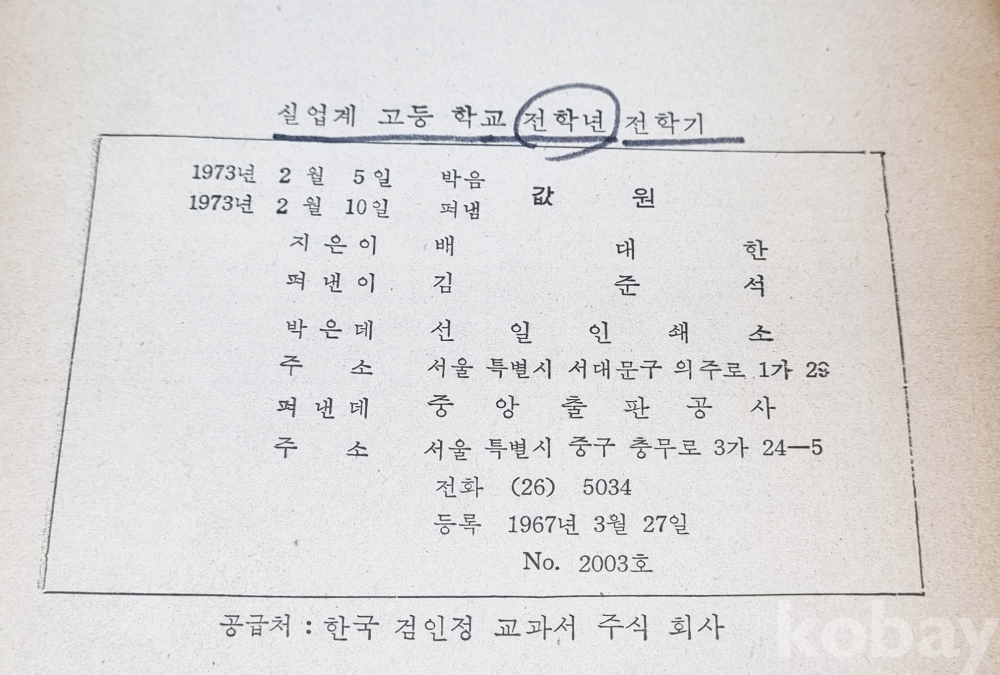 실업계 고등 학교 전학년 전학기
1973년 2 월 5 일 박음
1973년 2 월 10 일 펴냄
값 원
지 은 이 배 대 한
펴 낸 이 김 준 석
박 은 데 선 일 인 쇄 소
주 소 서울 특별시 서대문구 의주로 1가 28
펴 낸 데 중 앙 출 판 공 사
주 소 서울 특별시 중구 충무로 3가 24—5
전화 (26) 5034
등록 1967년 3월 27일
No. 2003호
공급처 : 한국 검인정 교과서 주식 회사
kobay